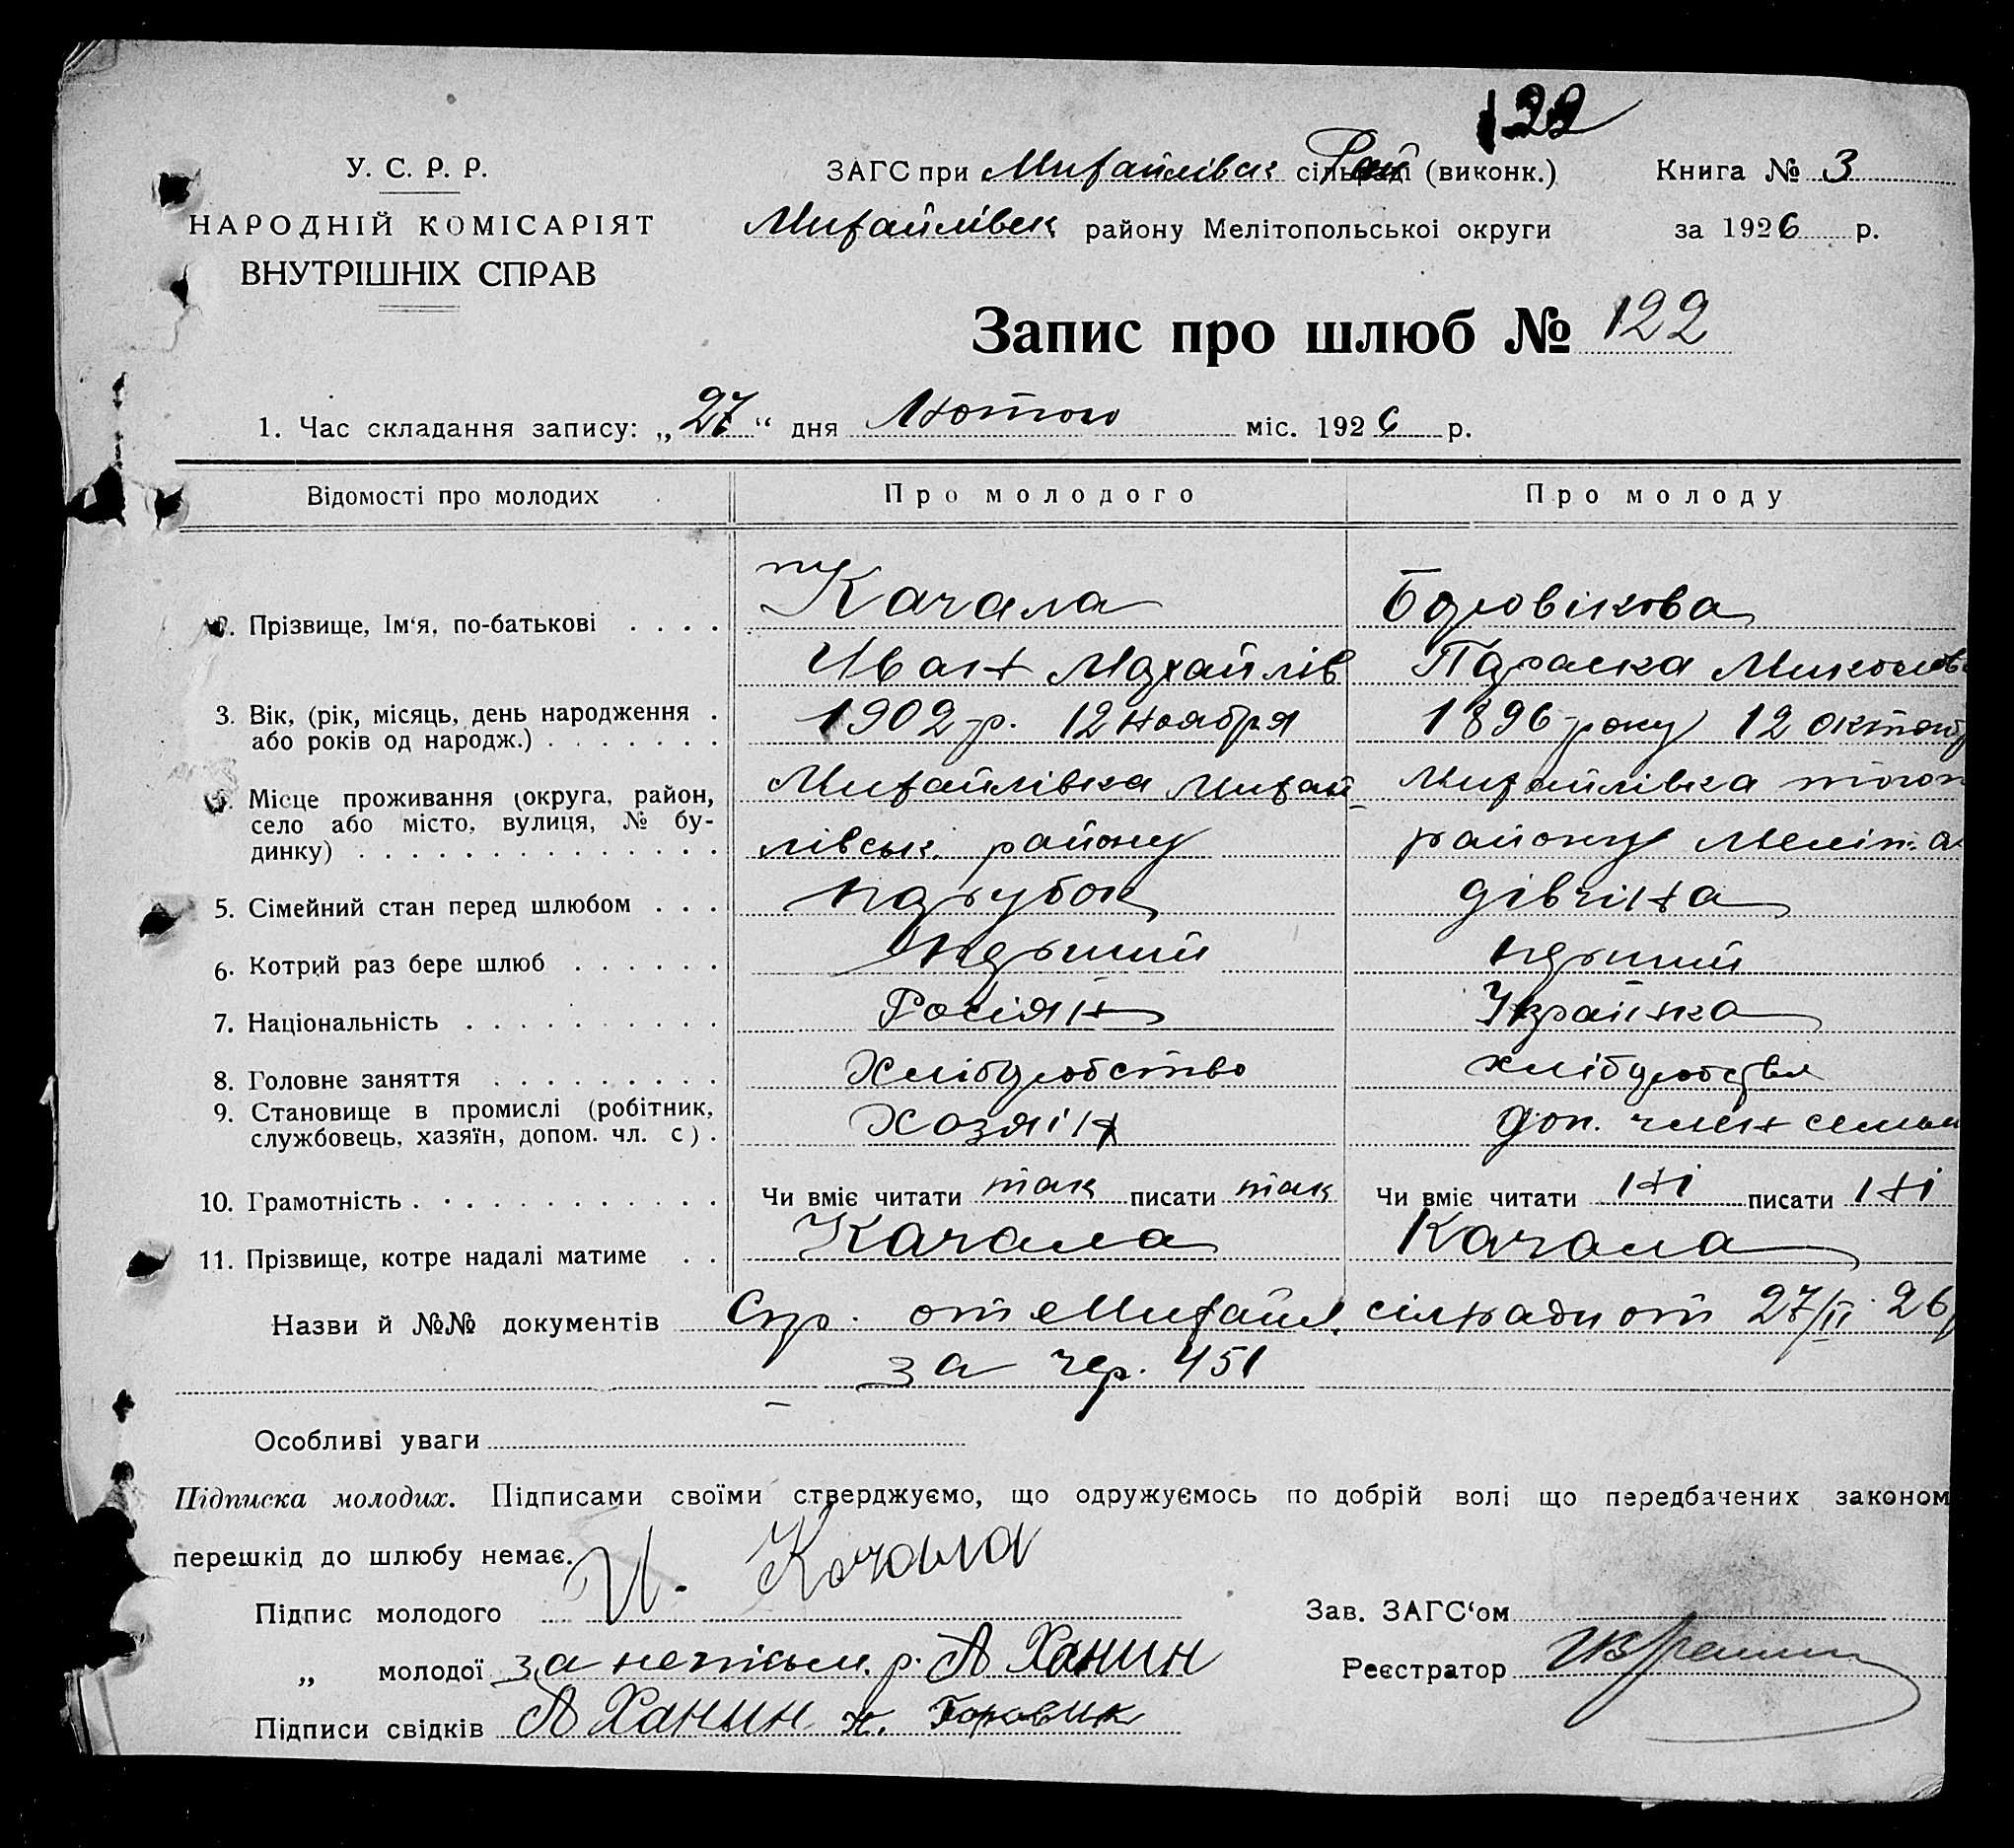 122
У. С. Р. Р.
НАРОДНІЙ КОМІСАРІЯТ
ВНУТРІШНІХ СПРАВ
ЗАГС при Михайлівск сільраді Рай (виконк.)
Книга № 3
Михайлівск району Мелітопольскоі округи
за 1926 р.
Запис про шлюб № 122
1. Час складання запису: „27“ дня Лютого міс. 1926 р.
Відомості про молодих
Про молодого
Про молоду
2. Прізвище, Ім‘я, по-батькові
Качала
Боровікова
Иван Михайлів
Параска Миколов
3. Вік, (рік, місяць, день народження
або років од народж.)
1902 р. 12 ноября
1896 року 12 октяб
4. Місце проживання (округа, район,
село або місто, вулиця, № бу-
динку)
Михайлівка Михай-
лівськ. району
Михайлівка того
району Меліт. о
5. Сімейний стан перед шлюбом
парубок
дівчіна
6. Котрий раз бере шлюб
перший
перший
7. Національність
Росіян
Українка
8. Головне заняття
Хліборобство
хліборобства
9. Становище в промислі (робітник,
службовець, хазяїн, допом. чл. с).
Хозяін
доп. член семьи
10. Грамотність
Чи вміє читати так писати так
Чи вміє читати ні писати ні
11. Прізвище, котре надалі матиме
Качала
Качала
Назви й №№ документів Спр. от Михайл. сілради от 27/II 26
за чер. 451
Особливі уваги
Підписка молодих. Підписами своїми стверджуємо, що одружуємось по добрій волі що передбачених законом
перешкід до шлюбу немає.
Підпис молодого И. Качала
Зав. ЗАГС‘ом
„ молодої за неписьм. р. А Ханин
Реєстратор
Підписи свідків А Ханин